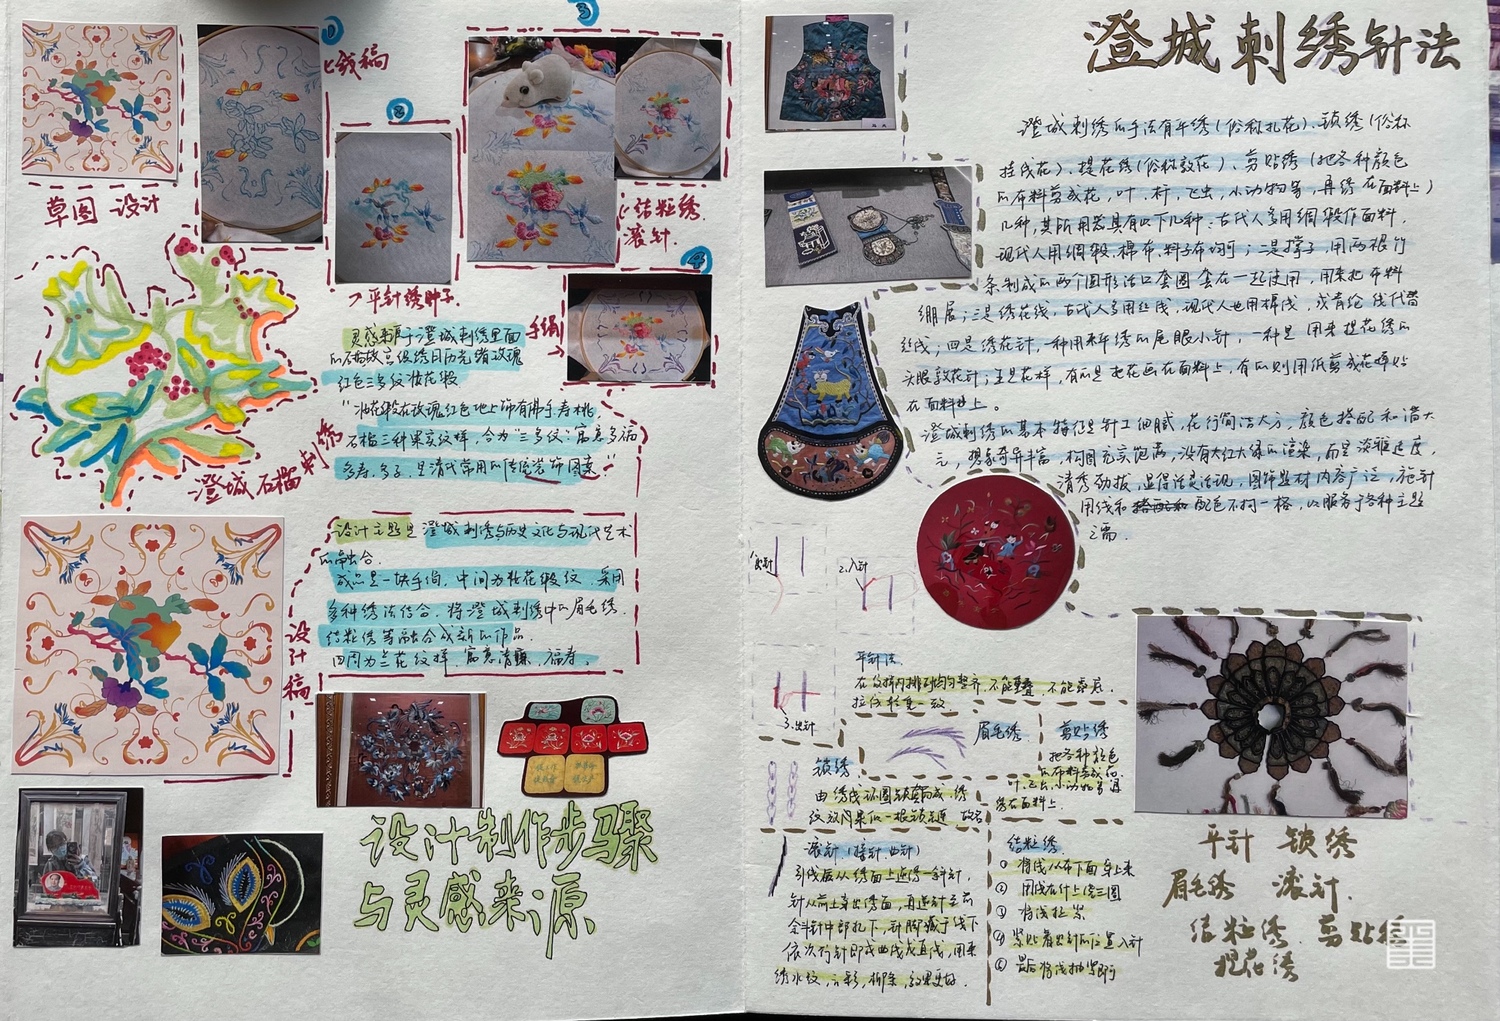 ①
线稿
②
③
草图 设计
结粒绣.
滚针.
↗平针绣叶子
④
手绢
灵感来源于澄城刺绣里面
红色三多纹妆花缎
"妆花缎在玫瑰红色地上饰有佛手、寿桃、
石榴三种果实纹样,合为"三多纹":寓意多福
多寿、多子,是清代常用的传统装饰图案。"
澄城石榴刺绣
设计主题是澄城刺绣与历史文化与现代艺术
的融合.
成品是一块手绢,中间为妆花缎纹,采用
多种绣法结合,将澄城刺绣中的眉毛绣.
结粒绣等融合成新的作品.
四周为兰花纹样,寓意清雅、福寿.
设计稿
设计制作步骤
与灵感来源
澄城刺绣针法
澄城刺绣的手法有平绣(俗称扎花)、锁绣(俗称
挂线花)、提花绣(俗称敦花)、剪贴绣(把各种颜色
的布料剪成花,叶.杆,飞虫,小动物等,再绣在面料上)
几种,其所用器具有以下几种:古代人多用绸缎作面料,
现代人用绸缎、棉布、料子布均可;二是撑子,用两根竹
条制成的两个圆形活口套圈套在一起使用,用来把布料
绷展;三是绣花线,古代人多用丝线,现代人也用棉线,或膏纶线代替
丝线,四是绣花针,一种用来平绣的尾眼小针,一种是用来提花绣的
头眼敦花针;五是花样,有的是把花画在面料上,有的则用纸剪成花样贴
在面料上。
澄城刺绣的基本特征是针工细腻,花行简洁大方,颜色搭配和谐大
方,想象奇异丰富,构图充实饱满,没有大红大绿的渲染,而是淡雅适度,
清秀劲拔,显得活灵活现,图饰题材内容广泛,施针
用线和配色不拘一格,以服务于各种主题
之需.
1.出针
2.入针
3.出针
平针法.
在纹样内排列均匀整齐,不能重叠,不能露底.
拉线轻重一致.
眉毛绣
剪贴绣
把各种颜色
的布料剪成花
叶、飞虫,小动物等再
绣在面料上.
锁绣
由绣线环圈锁套而成,绣
纹效果似一根锁链 故名
滚针(接针 曲针)
引线后从绣面上返得一斜针,
依次行针即成曲线或直线,用来
绣水纹,云彩,柳条,效果更好.
结粒绣.
① 将线从布下面穿上来
② 用线在针上绕三圈
③ 将线拉紧
④ 紧贴着出针的位置入针
⑤ 最后将线抽紧即可
平针 锁绣
眉毛绣 滚针.
结粒绣. 剪贴绣
提花绣